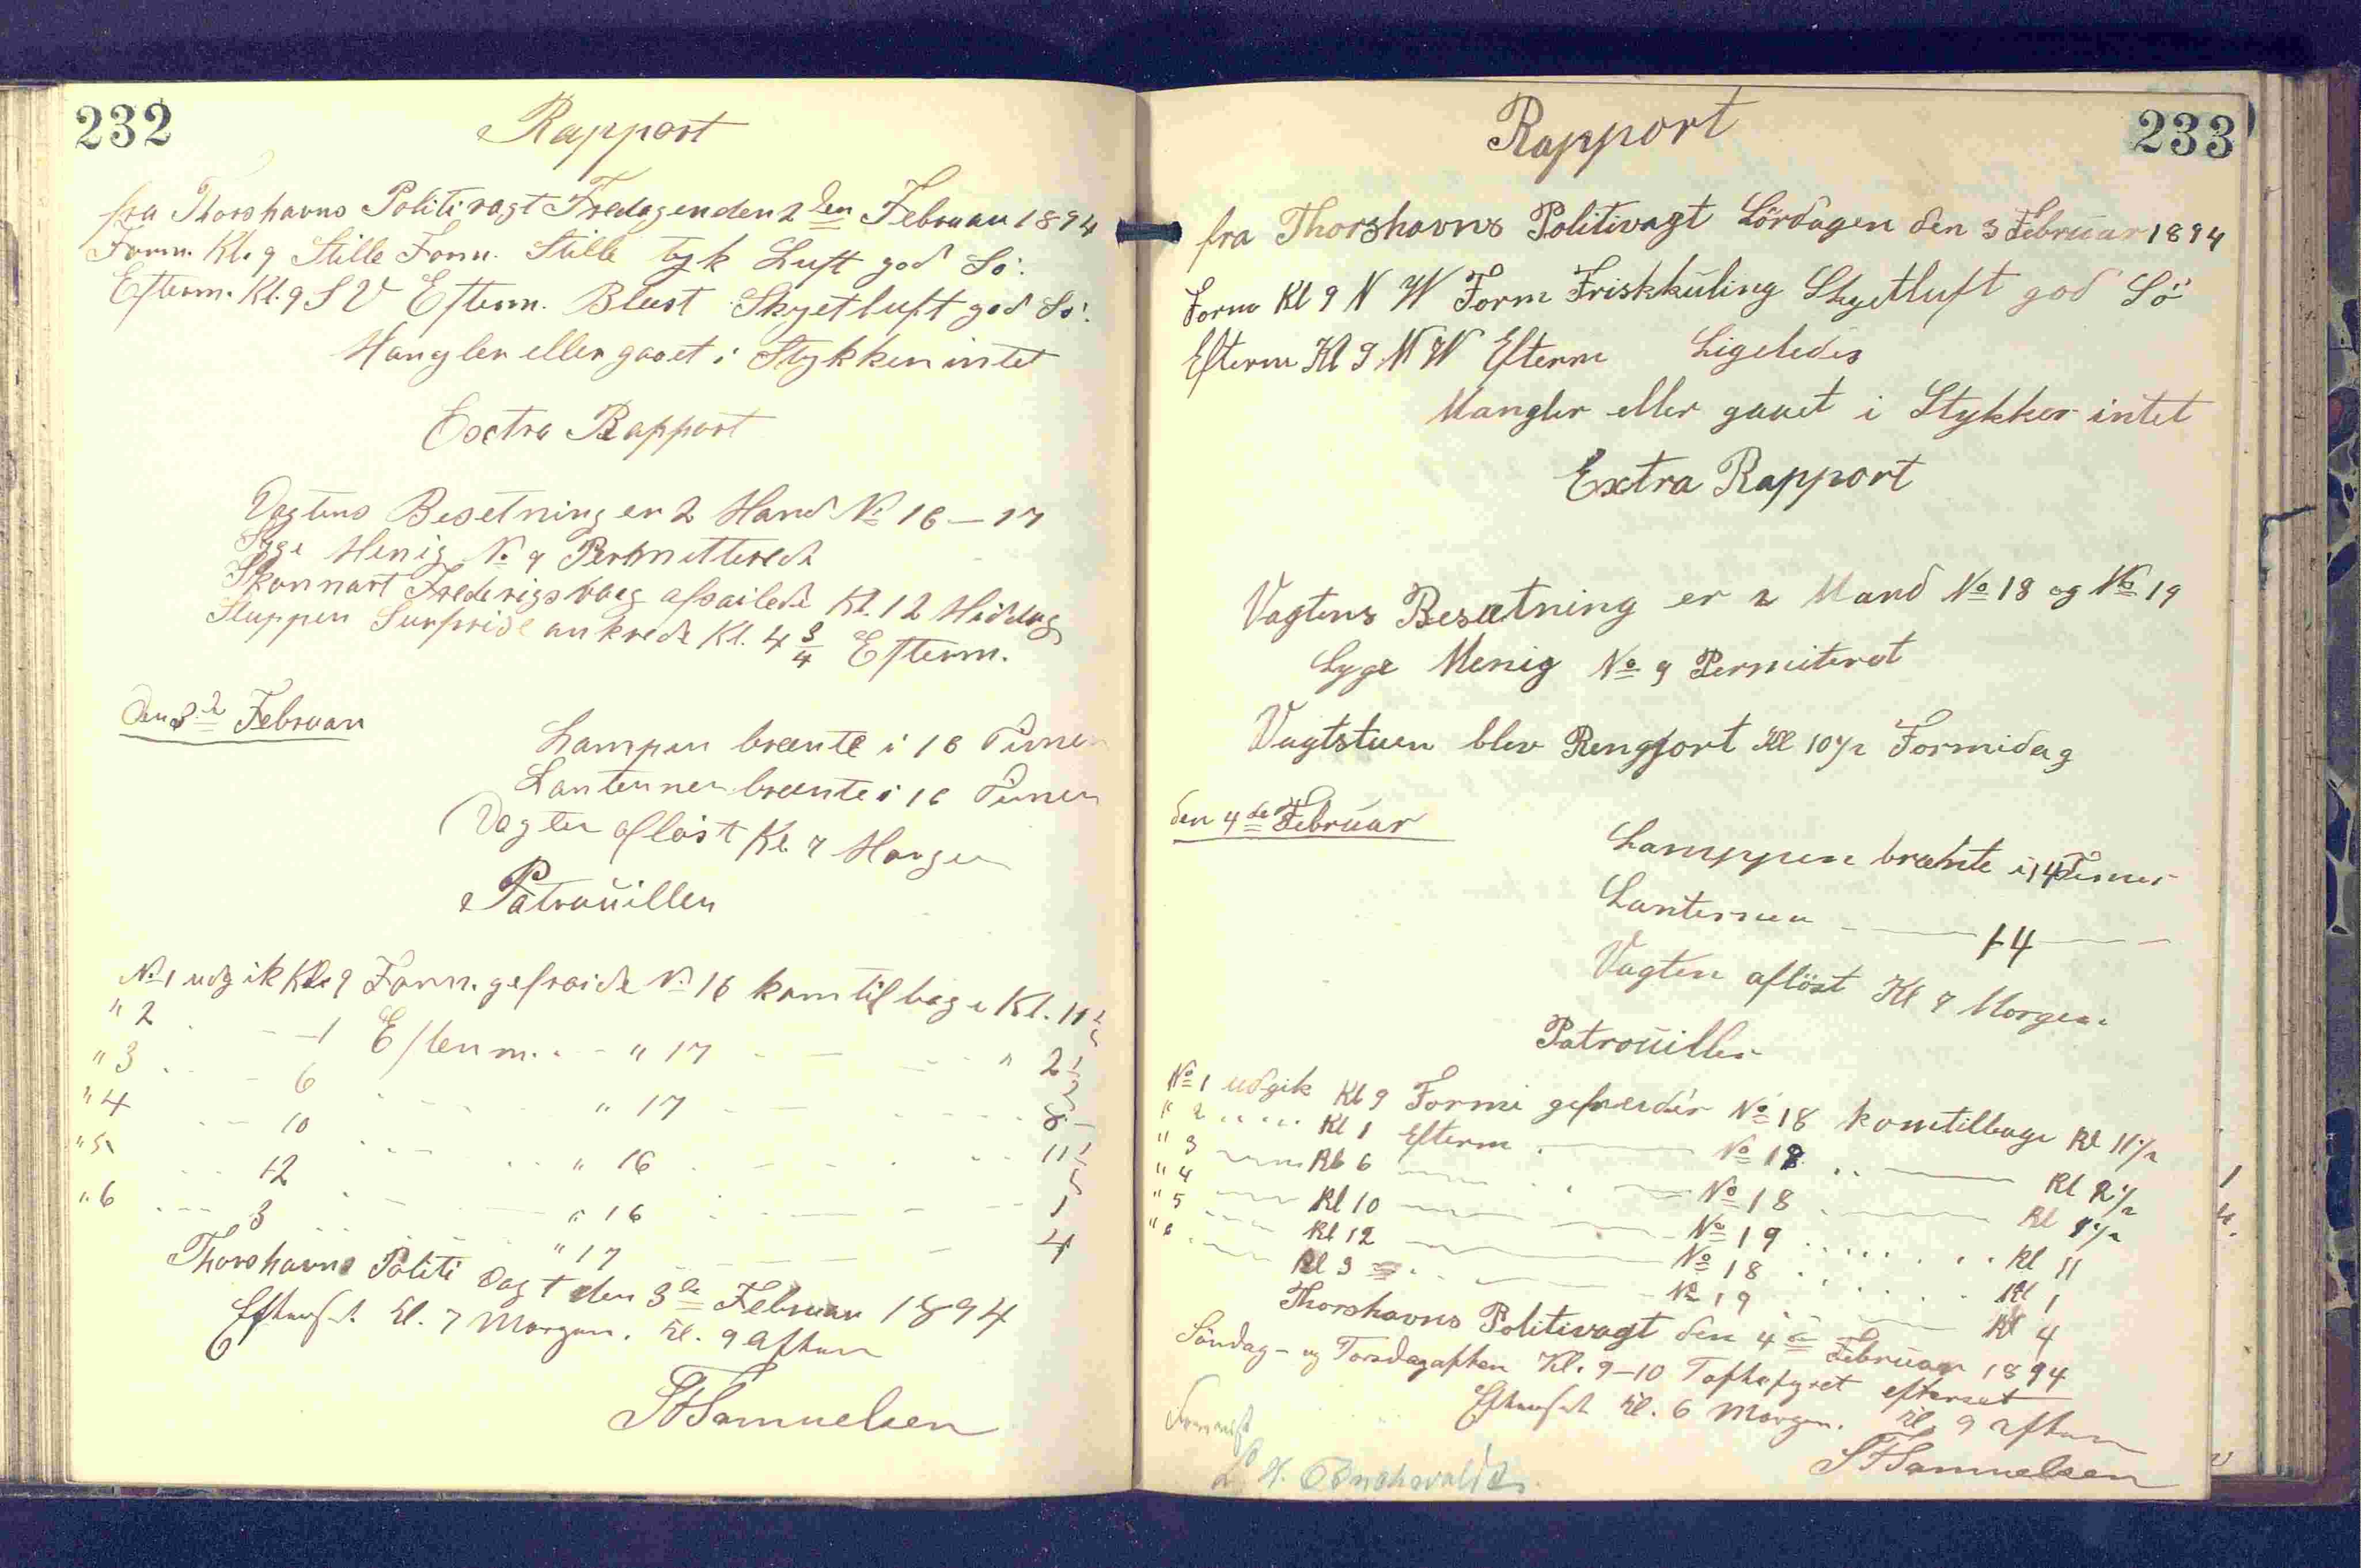 232
Rapport
fra Thorshavns Politivagt Fredagen den 2den Februar 1894
Form. Kl. 9 Stille Form. Stille tyk Luft god Sö.
Efterm. Kl. 9 S V Efterm. Blæst Skyetluft god Sö.
Mangler eller gaaet i Stykker intet
Extra Rapport
Vagtens Besetning er 2 Mand No 16 – 17
Syge Menig No 9 Permitterede
Skonnart Frederigsvaag afsailede Kl. 12 Middag
Sluppen Surprise ankrede Kl. 4 3/4 Efterm.
den 3de Februar
Lampen brænte i 16 Timer
Lanternen brænte i 16 Timer
Vagten aflöst Kl. 7 Morgen
Patrouillen
No 1 udgik Kl. 9 Form. gefraide No 16 kom tilbage Kl. 11 1/2
" 2 - - 1 Efterm. - " 17 - - " 2 1/2
" 3 - - 6 - - " 17 - - 8 -
" 4 - - 10 - - " 16 - - 11 1/2
" 5 - - 12 - - " 16 - - 1
" 6 - - 3 - - " 17 - - 4
Thorshavns Politi Vagt den 3de Februar 1894
Efterset Kl. 7 Morgen. Kl. 9 Aften
Samuelsen
233
Rapport
fra Thorshavns Politivagt Lördagen den 3 Februar 1894
Form Kl 9 N W Form Friskkuling Skyetluft god Sö
Efterm Kl 9 N W Efterm Ligeledes
Mangler eller gaaet i Stykker intet
Extra Rapport
Vagtens Besætning er 2 Mand No 18 og No 19
Syge Menig No 9 Permiteret
Vagtstuen blev Rengjort Kl 10 1/2 Formidag
den 4de Februar
Lamppen brænte i 14 Timer
Lanternen - — 14 — —
Vagten aflöst Kl 7 Morgen.
Patrouiller
No 1 udgik Kl 9 Formi gefreider No 18 kom tilbage Kl 11 1/2
" 2 .... Kl 1 Efterm . — No 18 .. — Kl 2 1/2
" 3 — Kl 6 — .. — No 18 . — Kl
" 4 — Kl 10 — — No 19 ..... Kl 11
" 5 — Kl 12 — — No 18 ..... Kl 1
" 6 — Kl 3 — — No 19 . — Kl 4
Thorshavns Politivagt den 4de Februar 1894
Söndag- og Torsdagaften Kl. 9–10 Toftefyret efterset
Efterset Kl. 6 Morgen. Kl. 9 Aften
Samuelsen